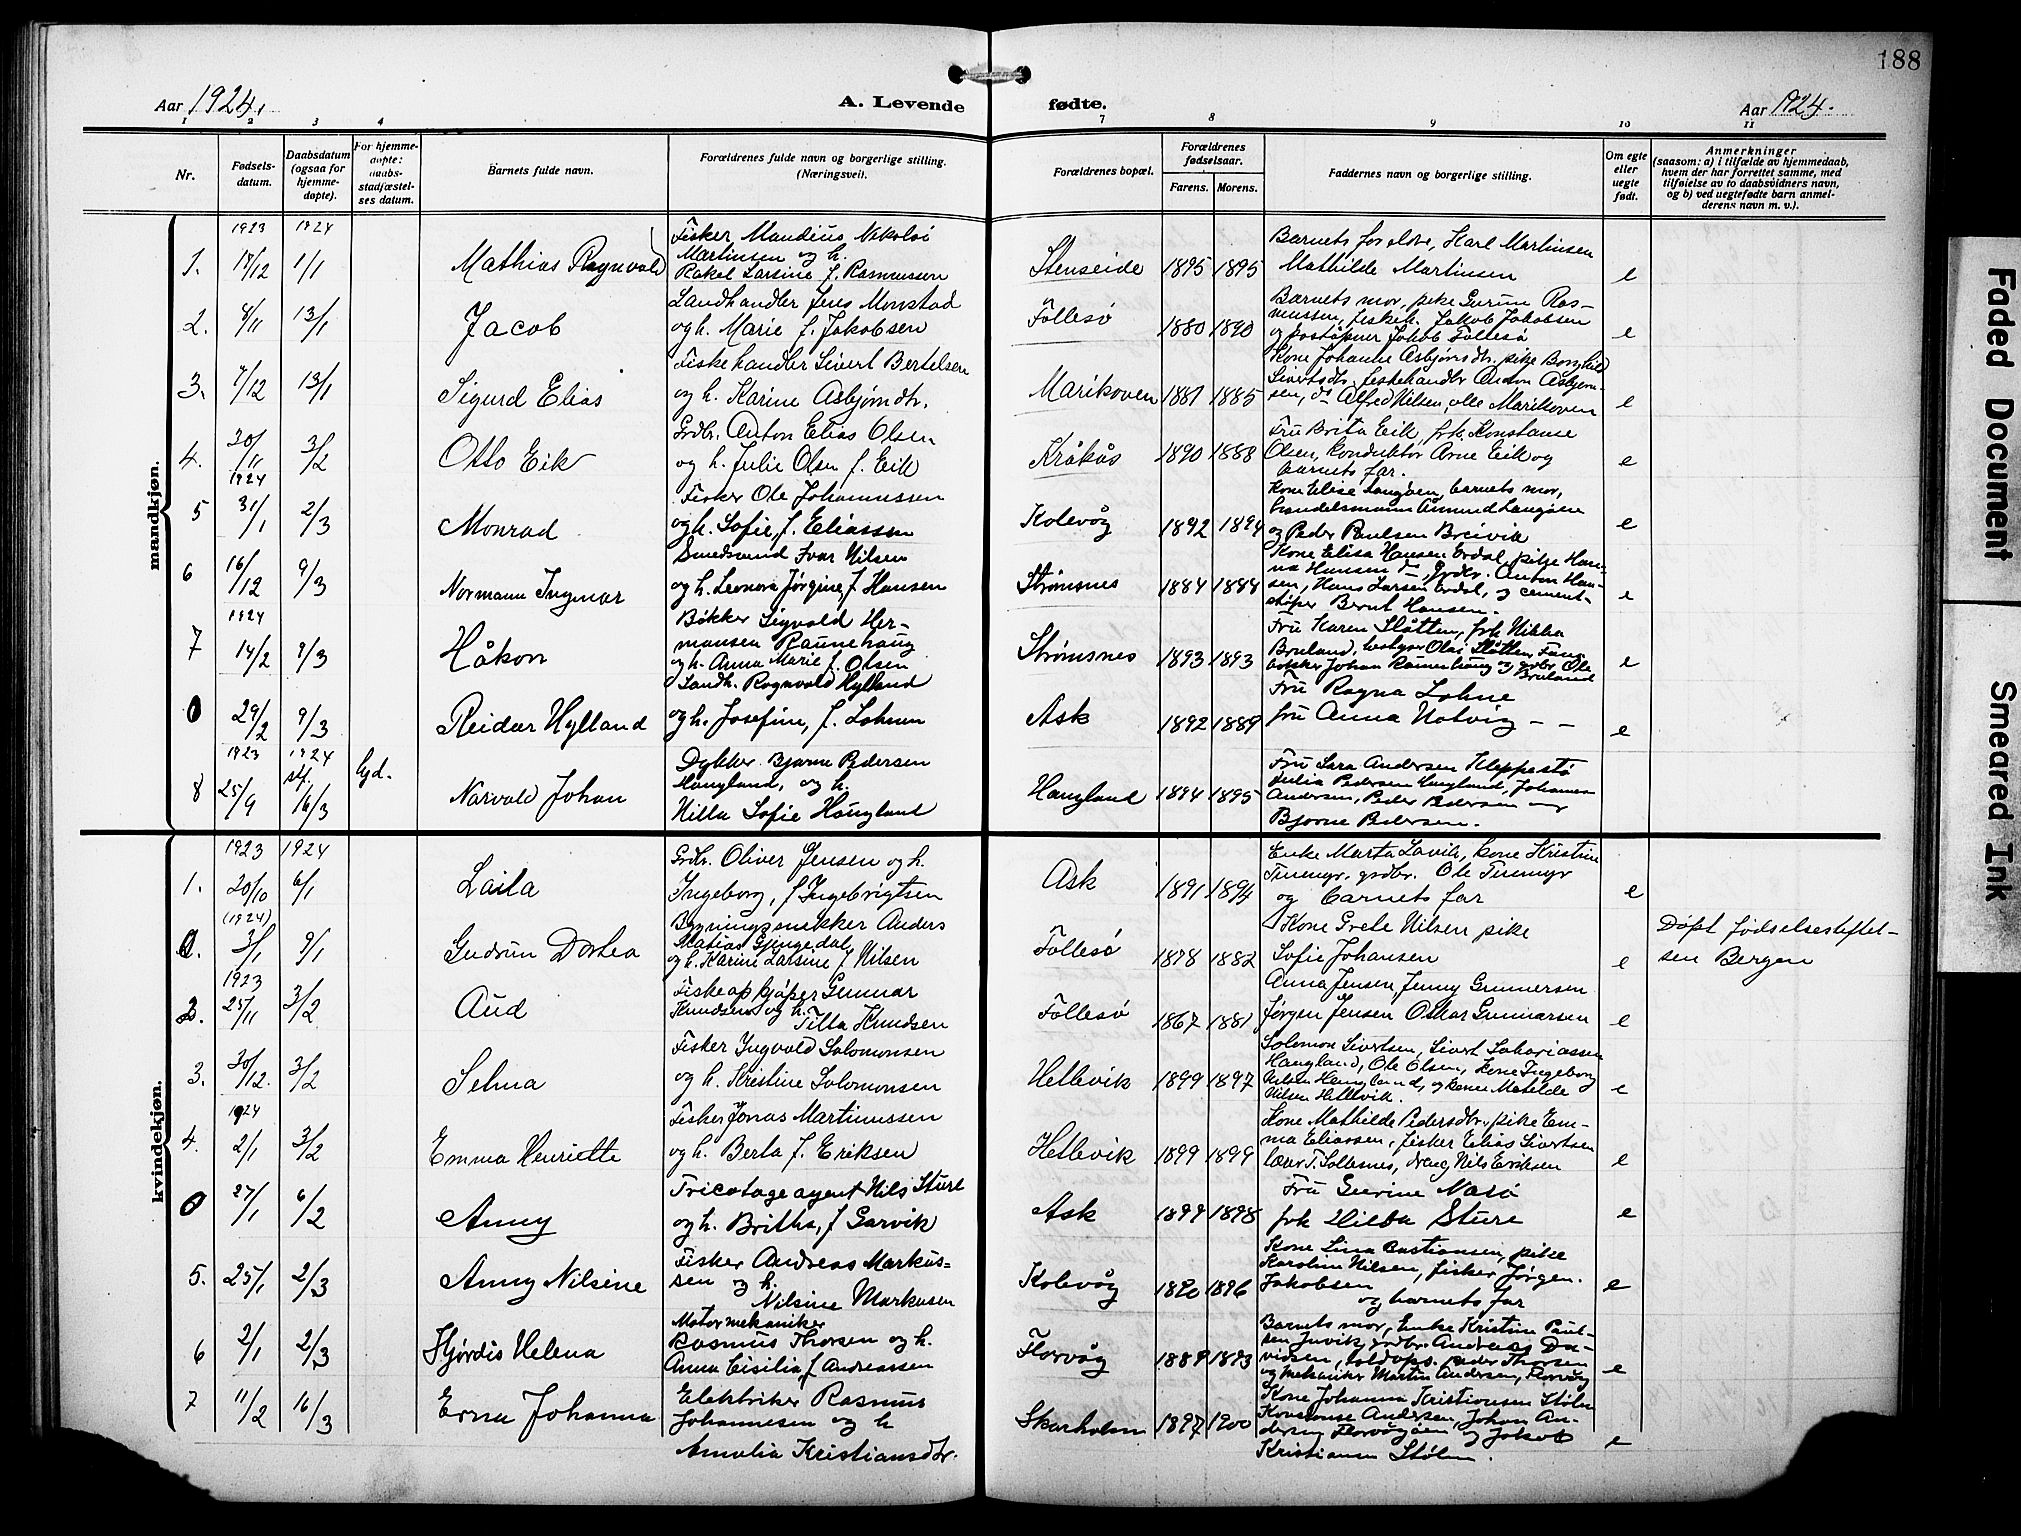 188
Aar 1924.
A. Levende fødte.
Aar 1924.
1 2 3 4 7 8 9 10 11
Nr.
Fødsels-
datum.
Daabsdatum
(ogsaa for
hjemme-
døpte).
For hjemme-
døpte:
daabs-
stadfæstel-
ses datum.
Barnets fulde navn.
Forældrenes fulde navn og borgerlige stilling.
(Næringsvei).
Forældrenes bopæl.
Forældrenes
fødselsaar.
Farens. Morens.
Faddernes navn og borgerlige stilling.
Om egte
eller
uegte
født.
Anmerkninger
(saasom: a) i tilfælde av hjemmedaab,
hvem der har forrettet samme, med
tilføielse av to daabsvidners navn,
og b) ved uegtefødte barn anmel-
derens navn m. v.).
mandkjøn.
1923 1924
Fisker Mandius Nikolai
Martinsen og h.
Rakel Larsine f. Rasmussen
1. 17/12 1/1 Mathias Ragnvald
Stenseide 1895 1895
Barnets foreldre, Karl Martinsen
Mathilde Martinsen
e
2. 8/11 13/1 Jacob
Landhandler Jens Monstad
og h. Marie f. Jakobsen
Follesø 1880 1890
Barnets mor, pike Gurun Ras-
mussen, fiskeh. Jakob Jakobsen
og poståpner Jakob Follesø
e
3. 7/12 13/1 Sigurd Elias
Fiskehandler Sivert Bertelsen
og h. Karine Asbjørndtr.
Marikoven 1881 1885
Kone Johanne Asbjørnsdtr. pike Borghild
Sivertsdtr. fiskehandler Anton Asbjørn-
sen, do Alfred Nilsen, alle Marikoven
e
4. 30/11 3/2 Otto Eik
Grdbr. Anton Elias Olsen
og h. Julie Olsen f. Eik
Kråkås 1890 1888
Fru Brita Eik, frk. Konstanse
Olsen, konduktør Arne Eik og
barnets far.
e
1924
5 31/1 2/3 Monrad
Fisker Ole Johannessen
og h. Sofie, f. Eliassen
Kolevåg 1892 1894
Kone Elise Langøen, barnets mor,
handelsmann Åmund Langøen
og Peder Paulsen Breivik
e
6 16/12 9/3 Normann Ingmar
Smedsvend Ivar Nilsen
og h. Leonora Jørgine f. Hansen
Strømsnes 1884 1884
Kone Elisa Hansen Erdal, pike Han-
na Hansen do, grdbr. Anton Han-
sen, Hans Larsen Erdal, og cement-
støper Bernt Hansen.
e
1924
7 14/2 9/3 Håkon
Bøkker Sigvald Her-
mansen Raunehaug
og h. Anna Marie f. Olsen
Strømsnes 1893 1893
Fru Karen Slåtten, frk Nikka
Bruland, Olai Slåtten,
bøkker Johan Raunehaug og grdbr. Ole
Bruland
e
0 29/2 9/3 Reidar Hylland
Landh. Ragnvald Hylland
og h. Josefine, f. Lohne
Ask 1892 1889
Fru Ragna Lohne
fru Anna Hatvig – –
e
1923 1924
8 25/9 stf. 16/3 lyd. Narvald Johan
Dykker Bjarne Pedersen
Haugland, og h.
Nilla Sofie Haugland
Haugland 1894 1895
Fru Sara Andersen Kleppestø
Julia Pedersen Haugland, Johannes
Andersen, Peder Pedersen og
Bjarne Pedersen.
kvindekjøn.
1923 1924
1. 20/10 6/1 Laila
Grdbr. Oliver Jensen og h.
Ingeborg, f. Ingebrigtsen
Ask 1891 1894
Enke Marta Lavik, kone Kristine
Tinmyr, grdbr. Ole Tinmyr
og barnets far
e
(1924)
0. 3/1 9/1 Gudrun Dorthea
Bygningssnekker Anders
Matias Gjengedal
og h. Karine Larsine f. Nilsen
Follesø 1878 1882
Kone Grete Nilsen pike
Sofie Johansen
e
Døpt fødselsestiftel-
sen Bergen
1923
2. 25/11 3/2 Aud
Fiskeopkjøper Gunnar
Knudsen og h.
Tilla Knudsen
Follesø 1867 1881
Anna Jensen, Jenny Gunnersen
Jørgen Jensen Oskar Gunnarsen
e
3. 30/12. 3/2 Selma
Fisker Ingvald Salomonsen
og h. Kristine Salomonsen
Hellevik 1899 1897
Salomon Sivertsen, Sivert Sakariassen
Haugland, Ole Olsen, kone Ingeborg
Nilsen Haugland, og kone Matilde
Nilsen Hellevik.
e
1924
4. 2/1 3/2 Emma Henriette
Fisker Jonas Martinussen
og h. Berta f. Eriksen
Hellevik 1899 1899
Kone Mathilde Pedersdtr., pike Em-
ma Eliassen, fisker Elias Sivertsen
lærer T. Sollesnes, dreng Nils Eriksen
e
0 27/1 6/2 Anny
Tricotageagent Nils Sture
og h. Britha, f. Garvik
Ask 1899 1898
Fru Gurine Narø
frk Hilda Sture
e
5. 25/1 2/3 Anny Nilsine
Fisker Andreas Markus-
sen og h.
Nilsine Markusen
Kolevåg 1890 1896
Kone Lina Bastiansen, pike
Karoline Nilsen, fisker Jørgen
Jakobsen
og barnets far
e
6 2/1 2/3 Hjørdis Helena
Motormekaniker
Rasmus Thorsen og h.
Anna Cisilia, f. Andreassen
Florvåg 1889 1893
Barnets mor, Enke Kristine Paul-
sen Juvik, grdbr. Andreas Da-
vidsen, toldops. Peder Thorsen
og mekaniker Martin Andersen, Florvåg
e
7 11/2 16/3 Erna Johanna
Elektriker Rasmus
Johannesen og h
Amalia Kristiansdtr.
Skarholmen 1897 1900
Kone Johanna Kristiansen Stølen
Konstanse Andersen, Johan An-
dersen Florvågøen og Jakob
Kristiansen Stølen.
e
Faded Document
Smeared Ink